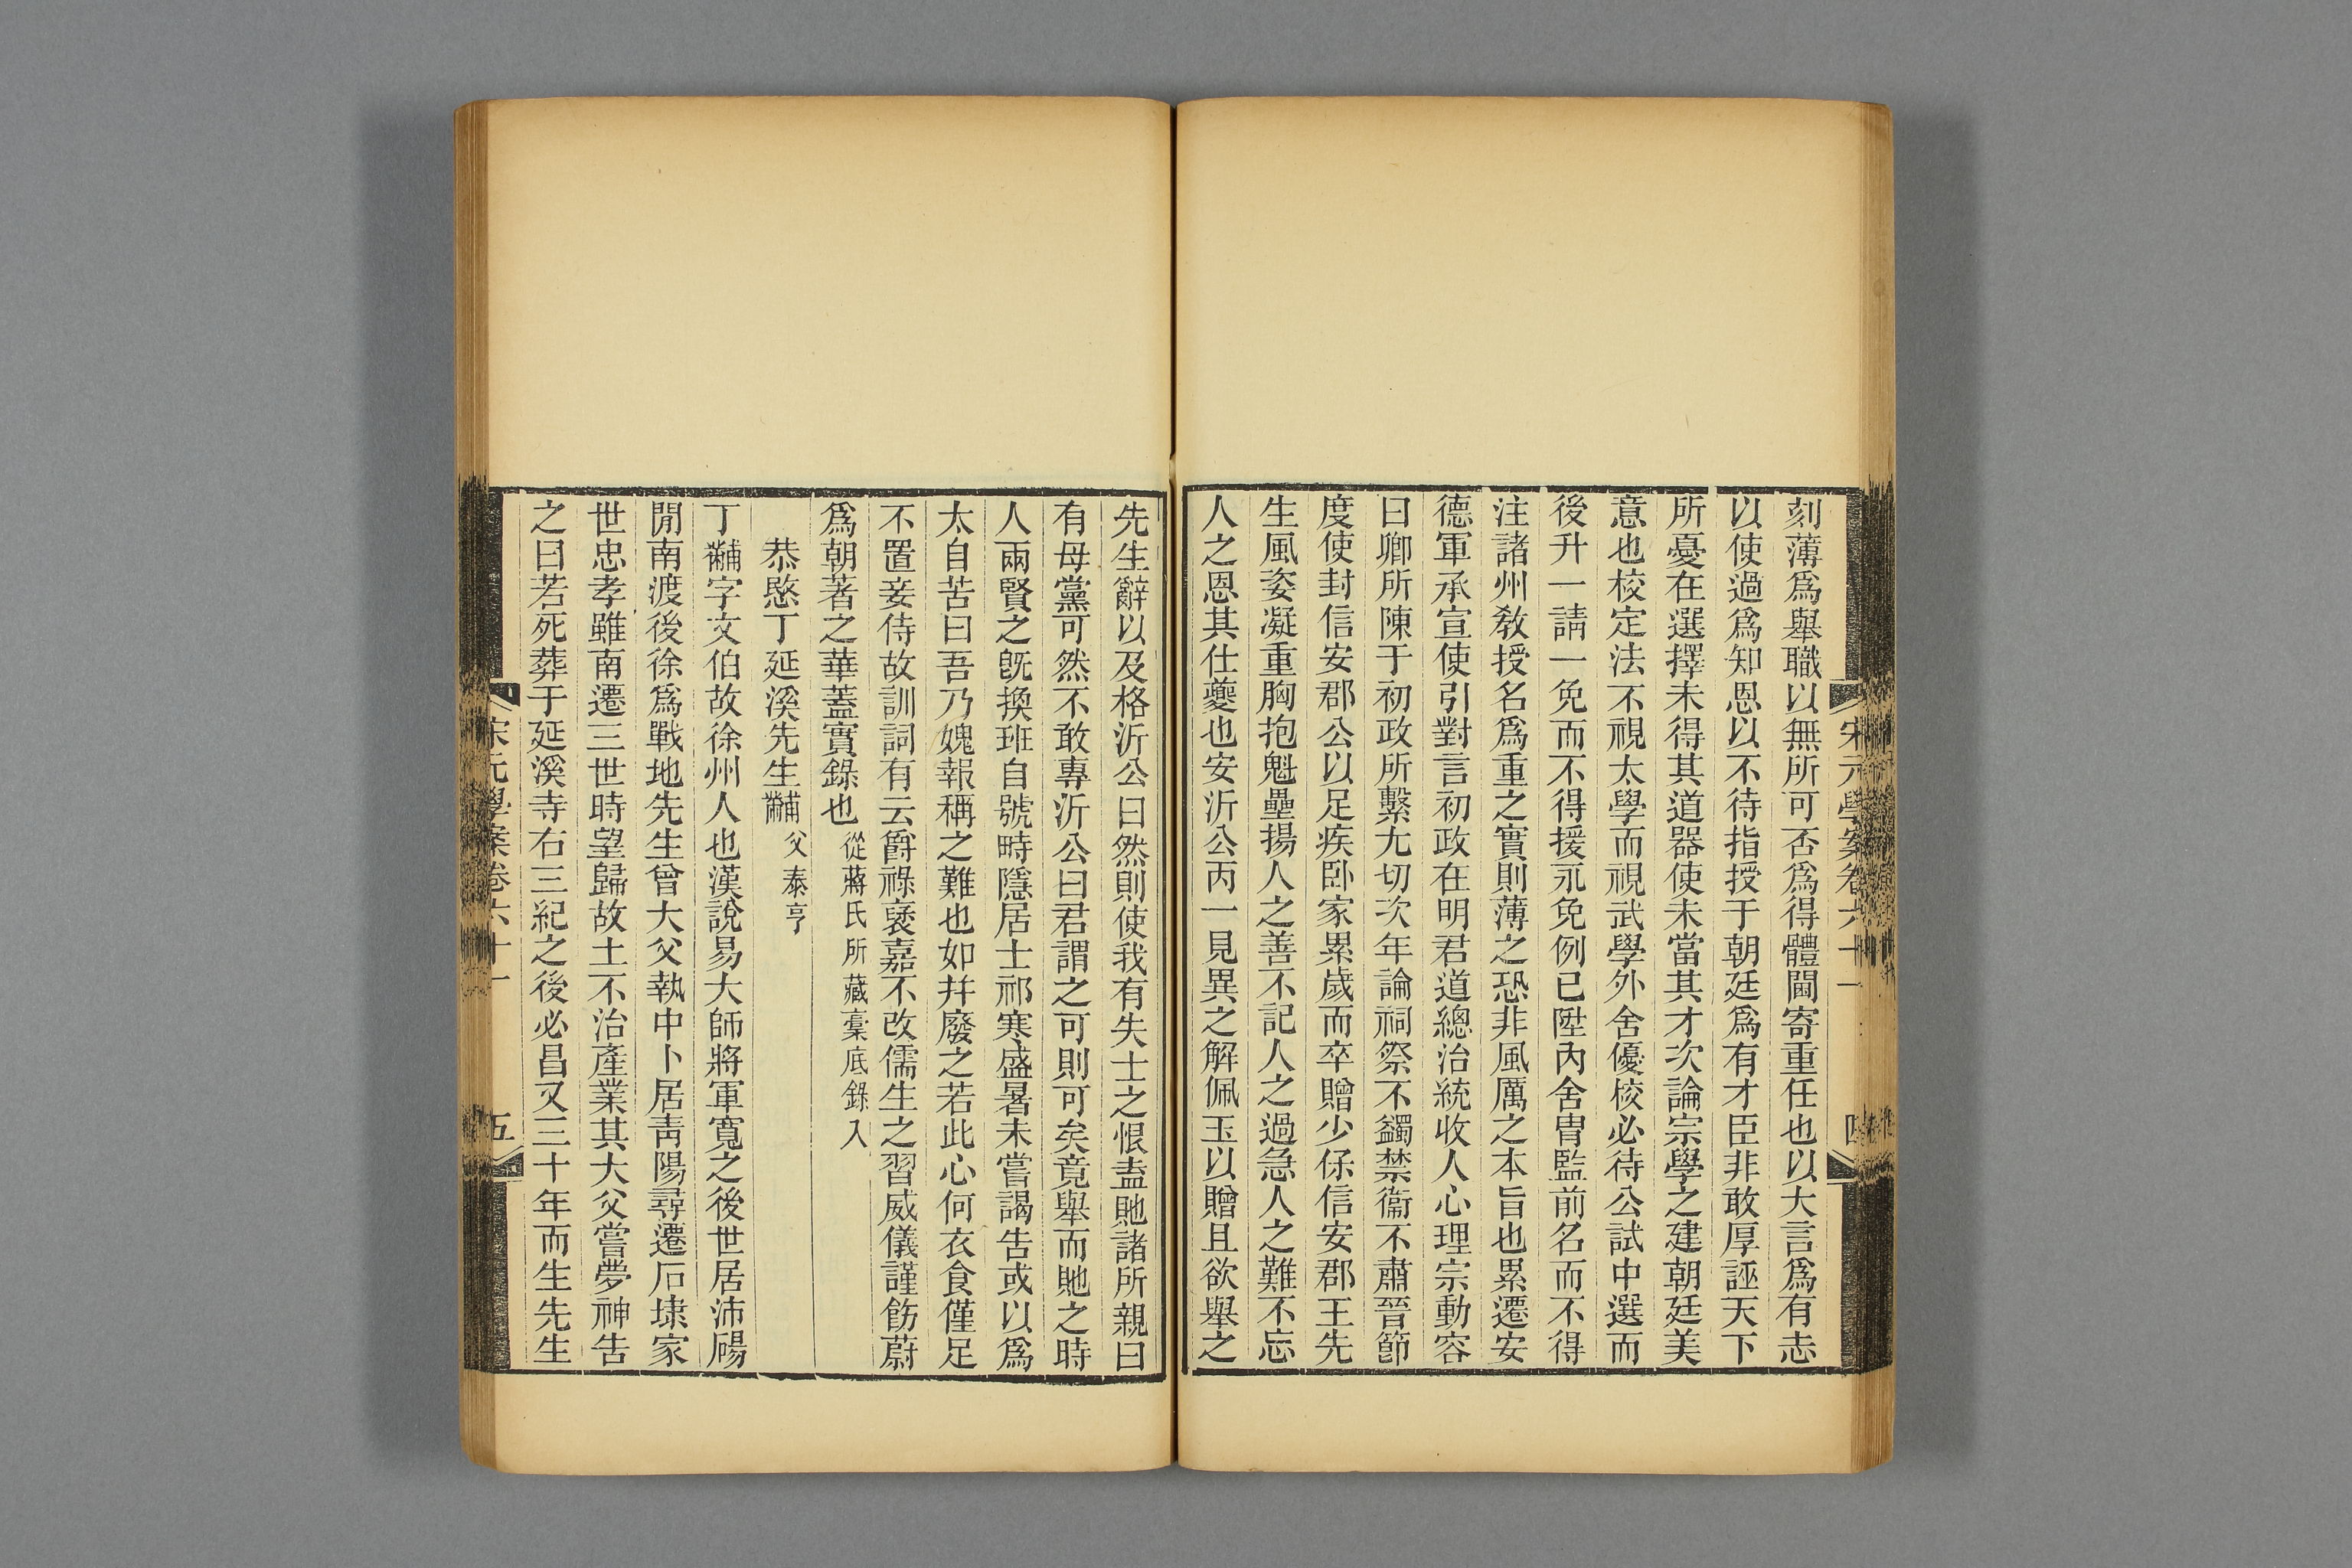 宋元學案卷六十一
四
刻薄爲舉職以無所可否爲得體閫寄重任也以大言爲有志
以使過爲知恩以不待指授于朝廷爲有才臣非敢厚誣天下
所憂在選擇未得其道器使未當其才次論宗學之建朝廷美
意也校定法不視太學而視武學外舍優校必待公試中選而
後升一請一免而不得援永免例已陞內舍冑監前名而不得
注諸州敎授名爲重之實則薄之恐非風厲之本旨也累遷安
德軍承宣使引對言初政在明君道總治統收人心理宗動容
曰卿所陳于初政所繫尢切次年論祠祭不蠲禁衞不肅晉節
度使封信安郡公以足疾卧家累歲而卒贈少保信安郡王先
生風姿凝重胸抱魁壘揚人之善不記人之過急人之難不忘
人之恩其仕夔也安沂公丙一見異之解佩玉以贈且欲舉之
先生辭以及格沂公曰然則使我有失士之恨盍貤諸所親曰
有母黨可然不敢專沂公曰君謂之可則可矣竟舉而貤之時
人兩賢之旣換班自號畤隱居士祁寒盛暑未嘗謁告或以爲
太自苦曰吾乃媿報稱之難也如幷廢之若此心何衣食僅足
不置妾侍故訓詞有云爵祿褎嘉不改儒生之習威儀謹飭蔚
爲朝著之華蓋實錄也從蔣氏所藏稾底錄入
恭愍丁延溪先生黼父泰亨
丁黼字文伯故徐州人也漢說易大師將軍寬之後世居沛碭
閒南渡後徐爲戰地先生曾大父執中卜居靑陽尋遷石埭家
世忠孝雖南遷三世時望歸故土不治產業其大父嘗夢神告
之曰若死葬于延溪寺右三紀之後必昌又三十年而生先生
宋元學案卷六十一
五